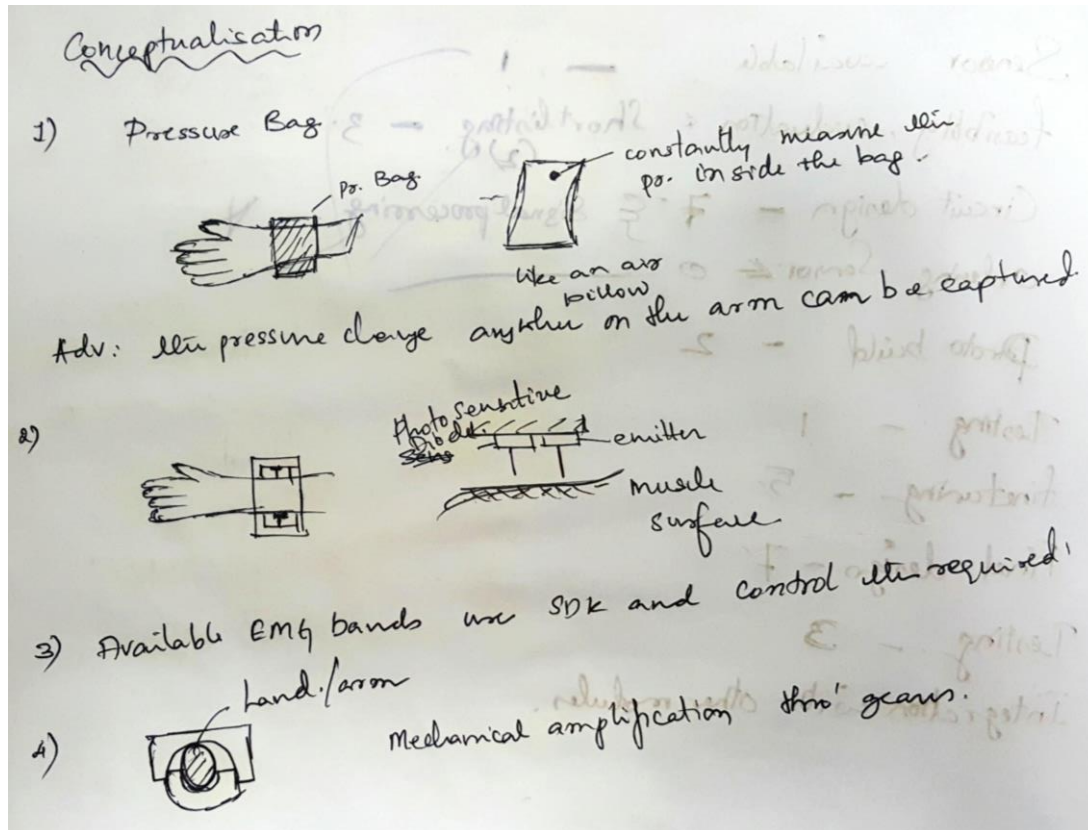 Conceptualisation
1) Pressure Bag
pr. Bag.
constantly measure the
pr. inside the bag.
like an air
pillow
Adv: the pressure change anywhere on the arm can be captured.
2)
Photo Sensitive
Diode
emitter
muscle
surface
3) Available EMG bands use SDK and control the required
hand/arm
4)
Mechanical amplification thro' gears.